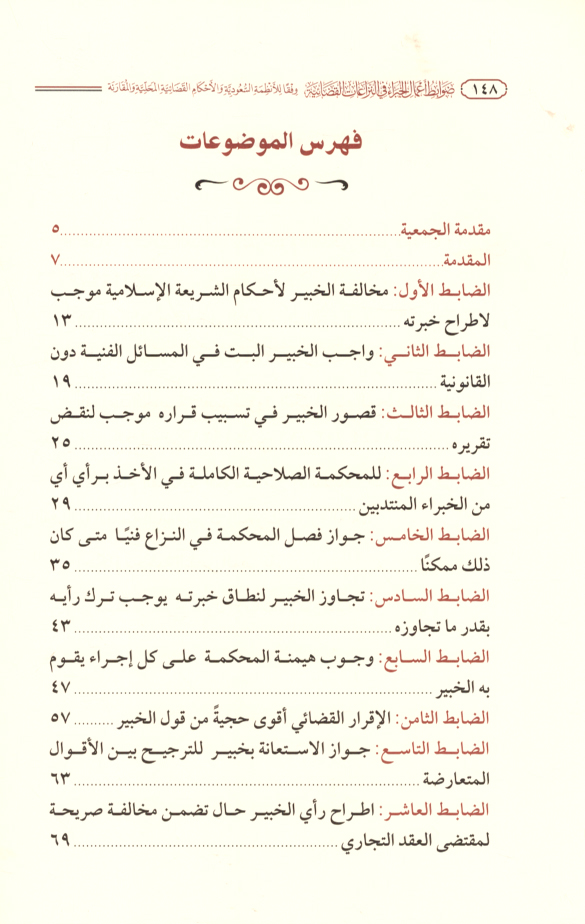 ١٤٨ ضوابط أعمال الخبراء في النزاعات القضائية وفقًا للأنظمة السعودية والأحكام القضائية المحلية والمقارنة
فهرس الموضوعات
مقدمة الجمعية ٥
المقدمة ٧
الضابط الأول: مخالفة الخبير لأحكام الشريعة الإسلامية موجب
لاطراح خبرته ١٣
الضابط الثاني: واجب الخبير البت في المسائل الفنية دون
القانونية ١٩
الضابط الثالث: قصور الخبير في تسبيب قراره موجب لنقض
تقريره ٢٥
الضابط الرابع: للمحكمة الصلاحية الكاملة في الأخذ برأي أي
من الخبراء المنتدبين ٢٩
الضابط الخامس: جواز فصل المحكمة في النزاع فنيًا متى كان
ذلك ممكنًا ٣٥
الضابط السادس: تجاوز الخبير لنطاق خبرته يوجب ترك رأيه
بقدر ما تجاوزه ٤٣
الضابط السابع: وجوب هيمنة المحكمة على كل إجراء يقوم
به الخبير ٤٧
الضابط الثامن: الإقرار القضائي أقوى حجيةً من قول الخبير ٥٧
الضابط التاسع: جواز الاستعانة بخبير للترجيح بين الأقوال
المتعارضة ٦٣
الضابط العاشر: اطراح رأي الخبير حال تضمن مخالفة صريحة
لمقتضى العقد التجاري ٦٩